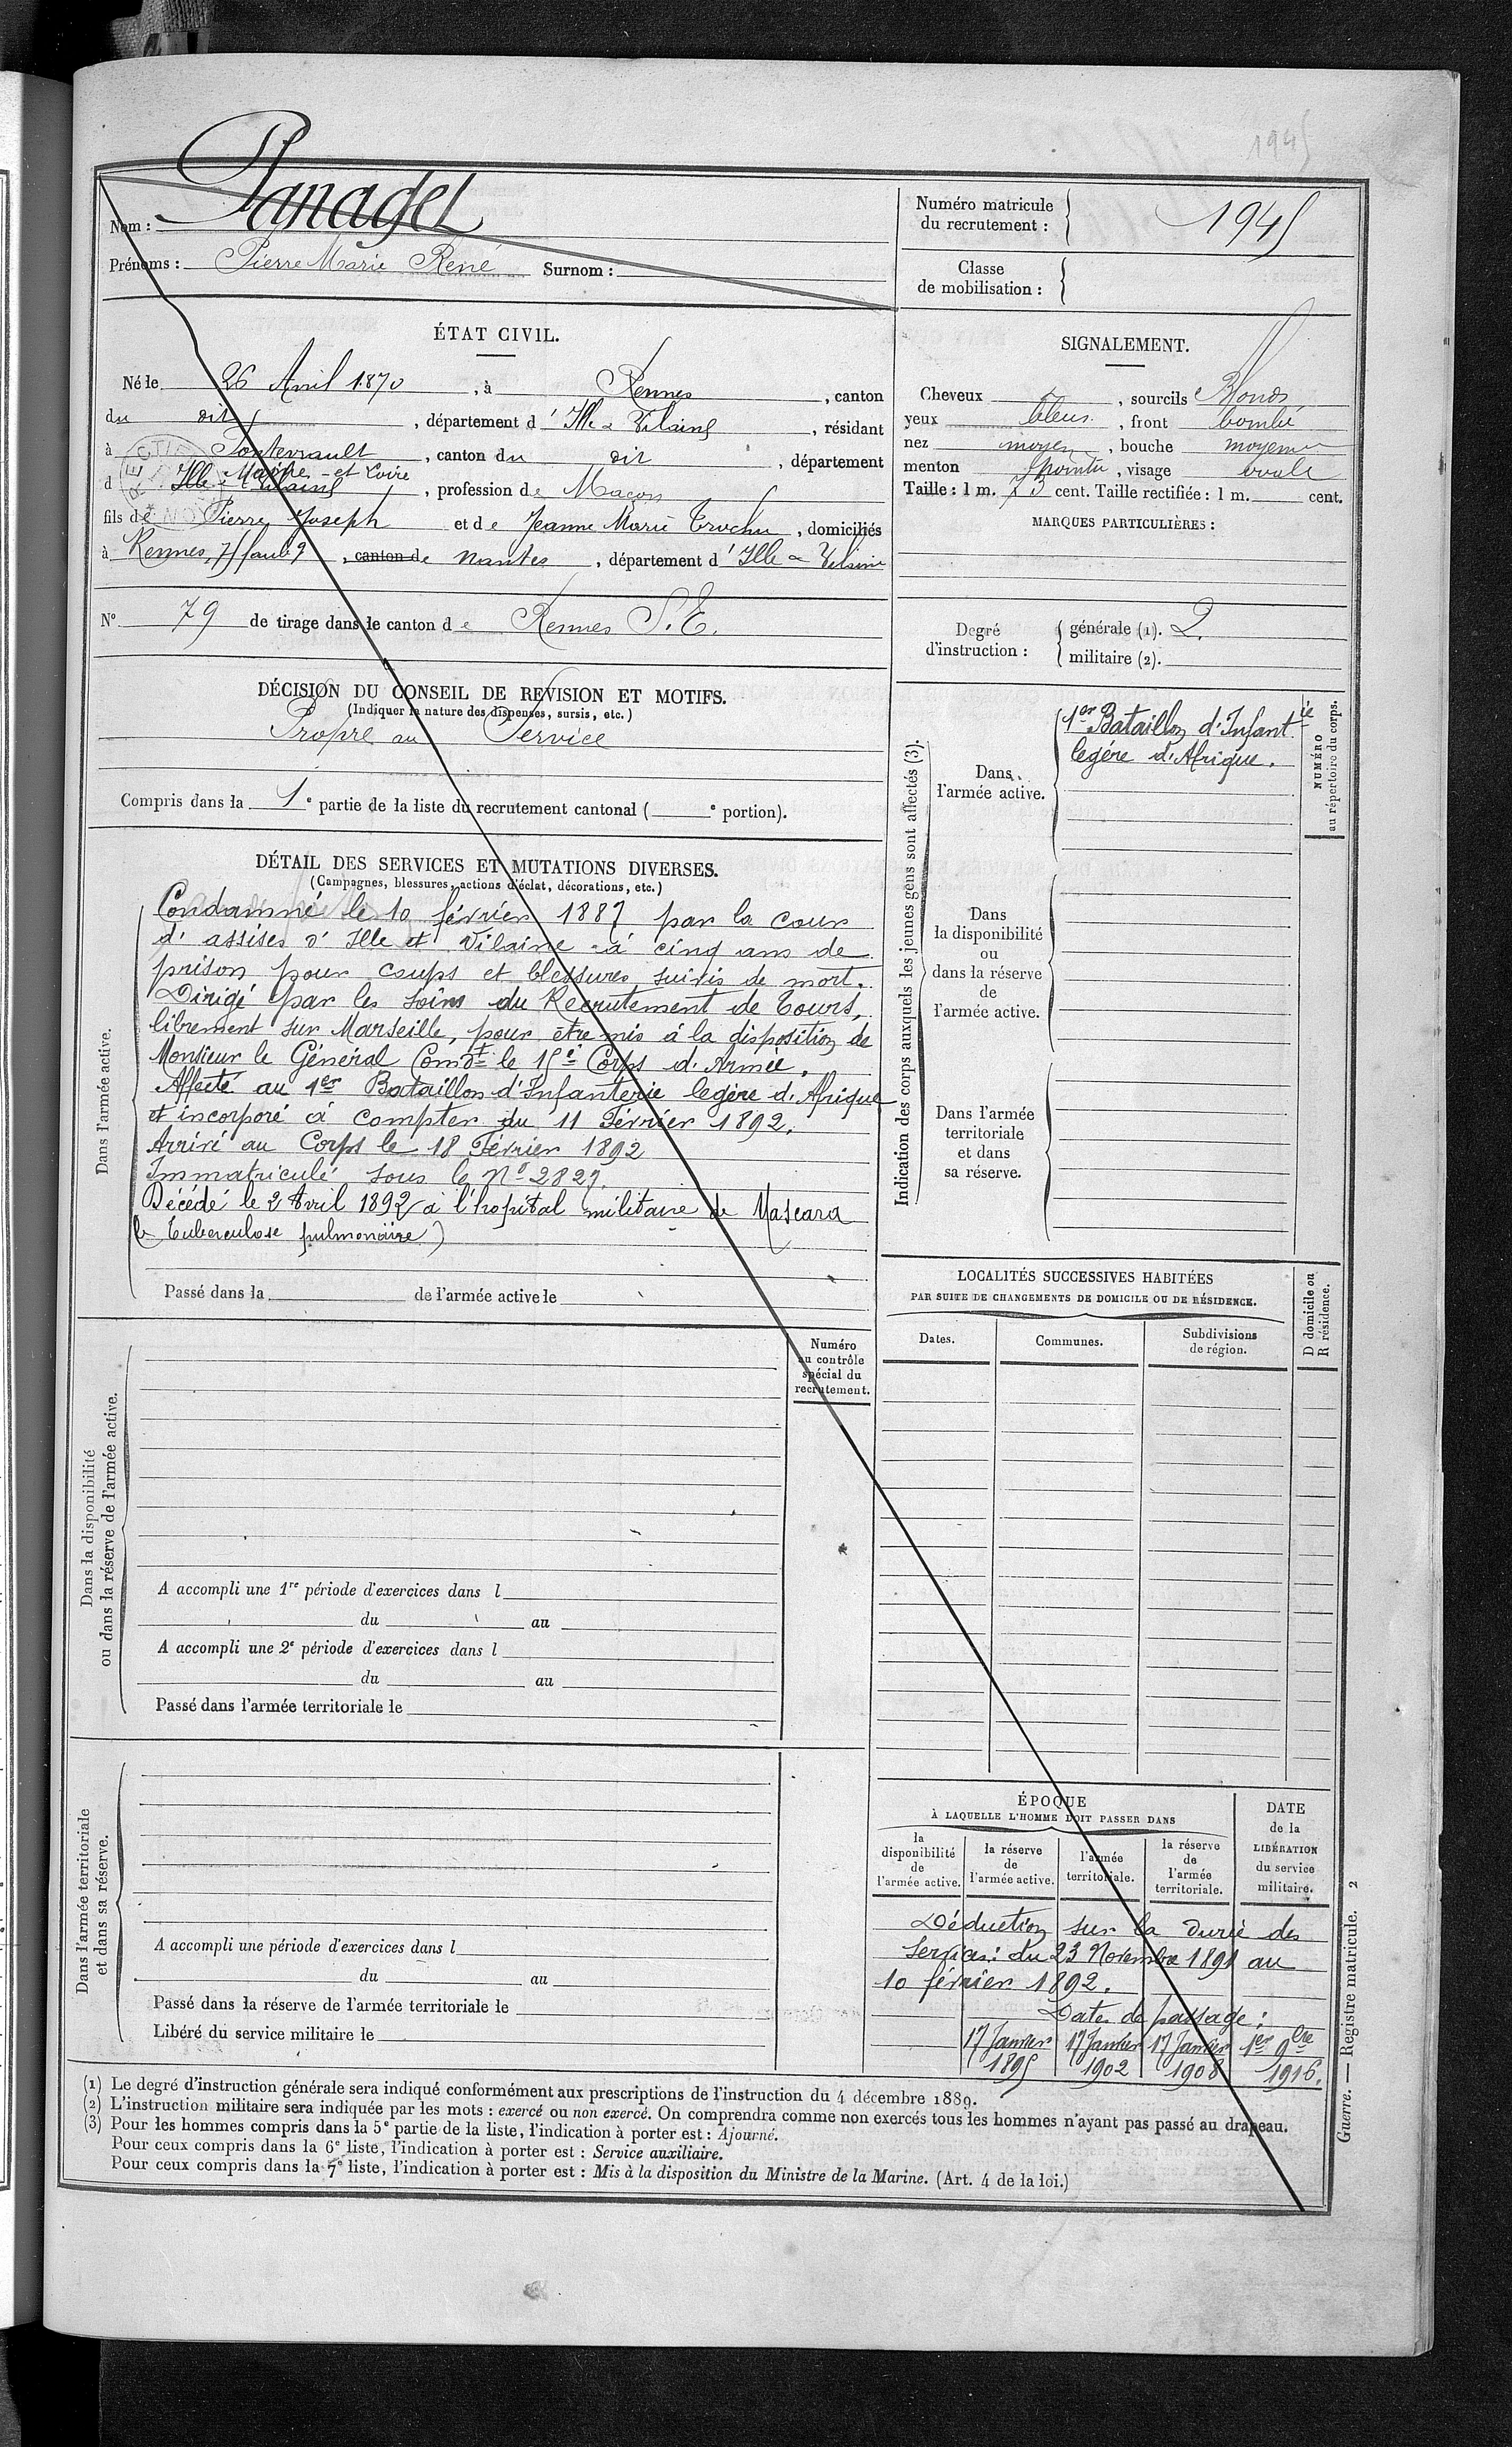 1945
Panaget
Nom :
Prénoms : Pierre Marie René Surnom :
Numéro matricule
du recrutement : 1945
Classe
de mobilisation :
ÉTAT CIVIL.
Né le 26 Avril 1870, à Rennes, canton
du dit, département d'Ille & Vilaine, résidant
à Fontevrault, canton du dit, département
Maine-et-Loire
d Ille & Vilaine, profession de Maçon
fils de Pierre Joseph et de Jeanne Marie Trochu, domiciliés
à Rennes, 7, faub g, canton de Nantes, département d'Ille & Vilaine
N° 79 de tirage dans le canton de Rennes S.E.
SIGNALEMENT.
Cheveux, sourcils Blonds
yeux bleus, front bombé
nez moyen, bouche moyenne
menton pointu, visage ovale
Taille : 1 m. 73 cent. Taille rectifiée : 1 m. cent.
MARQUES PARTICULIÈRES :
Degré
d'instruction :
générale (1). 2.
militaire (2).
DÉCISION DU CONSEIL DE REVISION ET MOTIFS.
(Indiquer la nature des dispenses, sursis, etc.)
Propre au Service
Compris dans la 1e partie de la liste du recrutement cantonal ( e portion).
DÉTAIL DES SERVICES ET MUTATIONS DIVERSES.
(Campagnes, blessures, actions d'éclat, décorations, etc.)
Dans l'armée active.
Condamné le 10 février 1887 par la cour
d'assises d'Ille et Vilaine à cinq ans de
prison pour coups et blessures suivis de mort.
Dirigé par les soins du Recrutement de Tours,
librement sur Marseille, pour être mis à la disposition de
Monsieur le Général Comdt le 15e Corps d'Armée.
Affecté au 1er Bataillon d'Infanterie legère d'Afrique
et incorporé à compter du 11 Février 1892.
Arrivé au Corps le 18 Février 1892
Immatriculé sous le No 2827.
Décédé le 2 Avril 1892 à l'hopital militaire de Mascara
(Tuberculose pulmonaire)
Passé dans la de l'armée active le
Indication des corps auxquels les jeunes gens sont affectés (3).
Dans
l'armée active.
1er Bataillon d'Infantie
legére d'Afrique.
NUMÉRO
au répertoire du corps.
Dans
la disponibilité
ou
dans la réserve
de
l'armée active.
Dans l'armée
territoriale
et dans
sa réserve.
LOCALITÉS SUCCESSIVES HABITÉES
PAR SUITE DE CHANGEMENTS DE DOMICILE OU DE RÉSIDENCE.
Dates.
Communes.
Subdivisions
de région.
D domicile ou
R résidence.
Dans la disponibilité
ou dans la réserve de l'armée active.
Numéro
au contrôle
spécial du
recrutement.
A accompli une 1re période d'exercices dans l
du au
A accompli une 2e période d'exercices dans l
du au
Passé dans l'armée territoriale le
Dans l'armée territoriale
et dans sa réserve.
A accompli une période d'exercices dans l
du au
Passé dans la réserve de l'armée territoriale le
Libéré du service militaire le
ÉPOQUE
À LAQUELLE L'HOMME DOIT PASSER DANS
la
disponibilité
de
l'armée active.
la réserve
de
l'armée active.
l'armée
territoriale.
la réserve
de
l'armée
territoriale.
DATE
de la
LIBÉRATION
du service
militaire.
Déduction sur la durée des
services: du 23 Novembre 1891 au
10 février 1892.
Dates de passage :
17 Janvier 17 Janvier 17 Janvier 1er 9bre
1895 1902 1908 1916.
(1) Le degré d'instruction générale sera indiqué conformément aux prescriptions de l'instruction du 4 décembre 1889.
(2) L'instruction militaire sera indiquée par les mots : exercé ou non exercé. On comprendra comme non exercés tous les hommes n'ayant pas passé au drapeau.
(3) Pour les hommes compris dans la 5e partie de la liste, l'indication à porter est : Ajourné.
Pour ceux compris dans la 6e liste, l'indication à porter est : Service auxiliaire.
Pour ceux compris dans la 7e liste, l'indication à porter est : Mis à la disposition du Ministre de la Marine. (Art. 4 de la loi.)
Guerre. — Registre matricule. 2